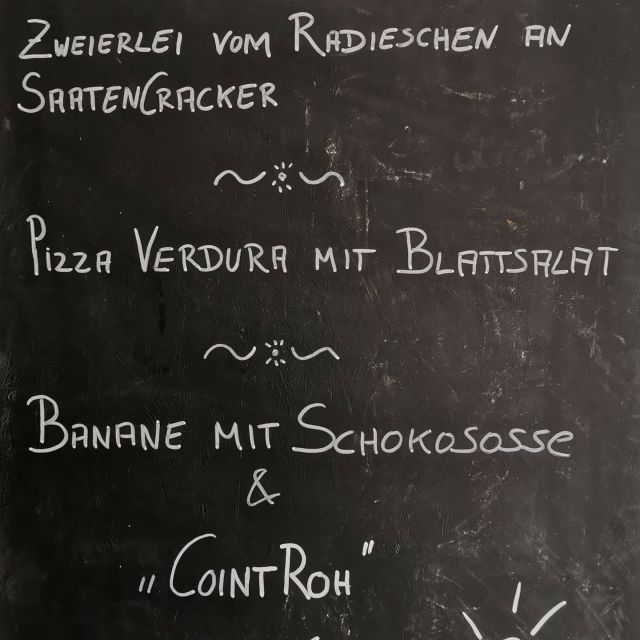 Zweierlei vom Radieschen an
SaatenCracker
Pizza Verdura mit Blattsalat
Banane mit Schokososse
&
„CointRoh"